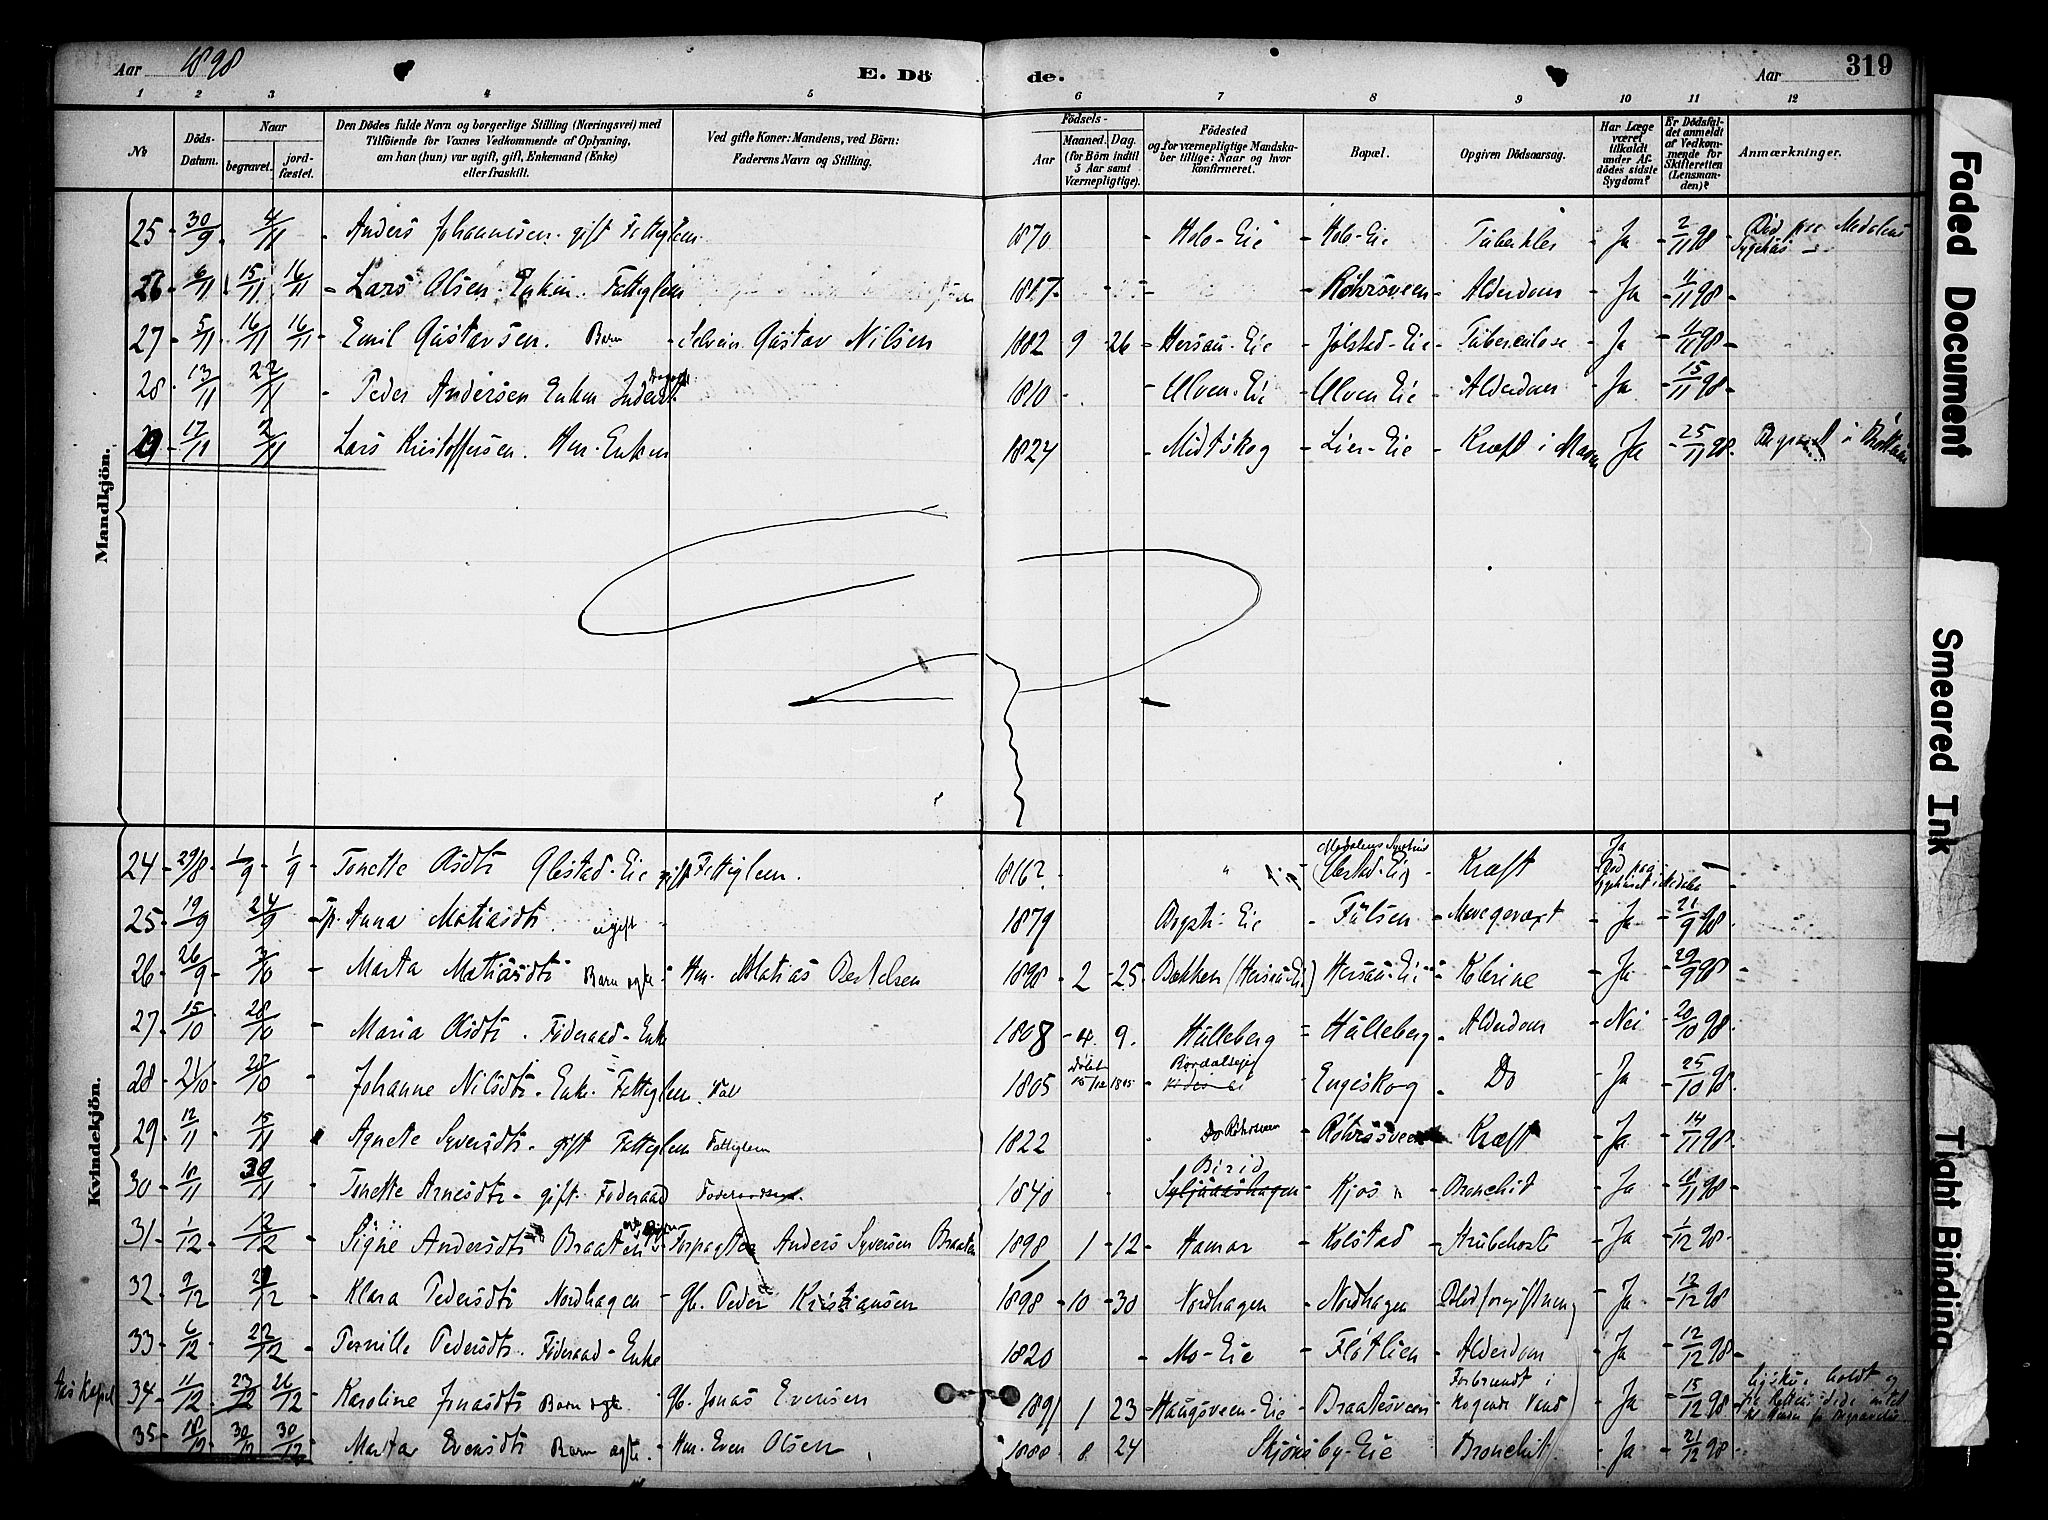 Aar 1898 E. Dö de. Aar 319
1 2 3 4 5 6 7 8 9 10 11 12
No Döds-Datum. Naar begravet. jordfæstet. Den Dödes fulde Navn og borgerlige Stilling (Næringsvei) med Tilföiende for Voxnes Vedkommende af Oplysning, om han (hun) var ugift, gift, Enkemand (Enke) eller fraskilt. Ved gifte Koner: Mandens, ved Börn: Faderens Navn og Stilling. Födsels- Aar Maaned. Dag. (for Börn indtil 5 Aar samt Værnepligtige). Födested og for værnepligtige Mandskaber tillige: Naar og hvor konfirmeret. Bopæl. Opgiven Dödsaarsag. Har Læge været tilkaldt under Afdödes sidste Sygdom? Er Dödsfaldet anmeldt af Vedkommende for Skifteretten (Lensmanden)? Anmærkninger.
Mandkjön.
25 - 30/9 4/11 - Anders Johannesen gift Fattiglem 1870 - Holo-Eie - Holo-Eie - Tuberkler - Ja - 2/11 98 - Død paa Sygehus
26 - 6/11 15/11 16/11 - Lars Olsen Enkem. Fattiglem 1817 - Røhrsveen - Alderdom - Ja - 11/11 98 -
27 - 5/11 16/11 16/11 - Emil Gustavsen. Barn - Selveier Gustav Nilsen 1882 9 - 26 - Hersau-Eie - Jølstad-Eie - Tuberculose - Ja - 11/11 98 -
28 - 13/11 22/11 - Peder Andersen Enkem Inderst 1810 - Ulven-Eie - Ulven Eie - Alderdom - Ja - 15/11 98 -
29 - 17/11 2/11 - Lars Kristoffersen. Hm. Enkem 1824 - Midtskog - Lier-Eie - Kræft i Maven Ja - 25/11 98 - Begravet i Brøttum
Kvindekjön.
24 - 29/8 - 1/9 - 1/9 - Tonette Olsdtr Olestad-Eie gift Fattiglem. 1816? Kræft Ja Død paa Sygehuset i
25 - 19/9 24/9 - Anna Matiasdtr. ugift - 1879 - Fulsen - Mavegevæxt - Ja - 21/9 98
26 26/9 3/10 - Marta Matiasdtr Barn ægte - Hm. Matias Bertelsen 1898 - 2 - 25 - Bækken (Hersau-Eie) Hersau-Eie - Kolerine - Ja - 29/9 98 -
27 - 15/10 28/10 - Maria Olsdtr - Føderaad-Enke 1808 - 9. - Hulleberg = Hulleberg - Alderdom - Nei - 20/10 98 -
28 - 21/10 28/10 Johanne Nilsdtr - Enke - Fattiglem 1805 Døbt 15/12 1805 - Engeskog - Do - Ja - 25/10 98 -
29 12/11 15/11 Agnete Syversdtr - gift Fattiglem Fattiglem 1822 - Do - Røhrsveen - Kræft - Ja - 14/11 98 -
30 - 18/11 30/11 Tonette Arnesdtr - gift. Føderaad 1840 - Birid - Kjos - Bronchit - Ja - 18/11 98 -
31 1/12 12/12 - Signe Andersdtr Braaten - Forpagter Anders Syversen Braaten 1898 1 - 12 - Hamar - Kolstad - Strubehoste - Ja - 1/12 98 -
32 - 9/12 21/12 - Klara Pedersdtr Nordhagen - Gb. Peder Kristiansen 1898 - 10 - 30 - Nordhagen - Nordhagen - Blodforgiftning - Ja - 12/12 98
33 - 6/12 22/12 - Pernille Pedersdtr. Føderaad-Enke 1820 - Mo-Eie - Fløtlien - Alderdom - Ja - 12/12 98 -
Aas Kapel 34 - 11/12 23/12 26/12 - Karoline Jonasdtr Barn ægte. Gb. Jonas Evensen 1891 1 23 - Haugsveen-Eie - Braatesveen - Forbrændt i kogende Vand - Ja - 15/12 98
35 - 18/12 30/12 30/12 - Marta Evensdtr Barn ægte - Hm. Even Olsen 8 24 Skjønsby-Eie Bronchit - Ja - 21/12 98 -
Faded Document
Smeared Ink
Tight Binding